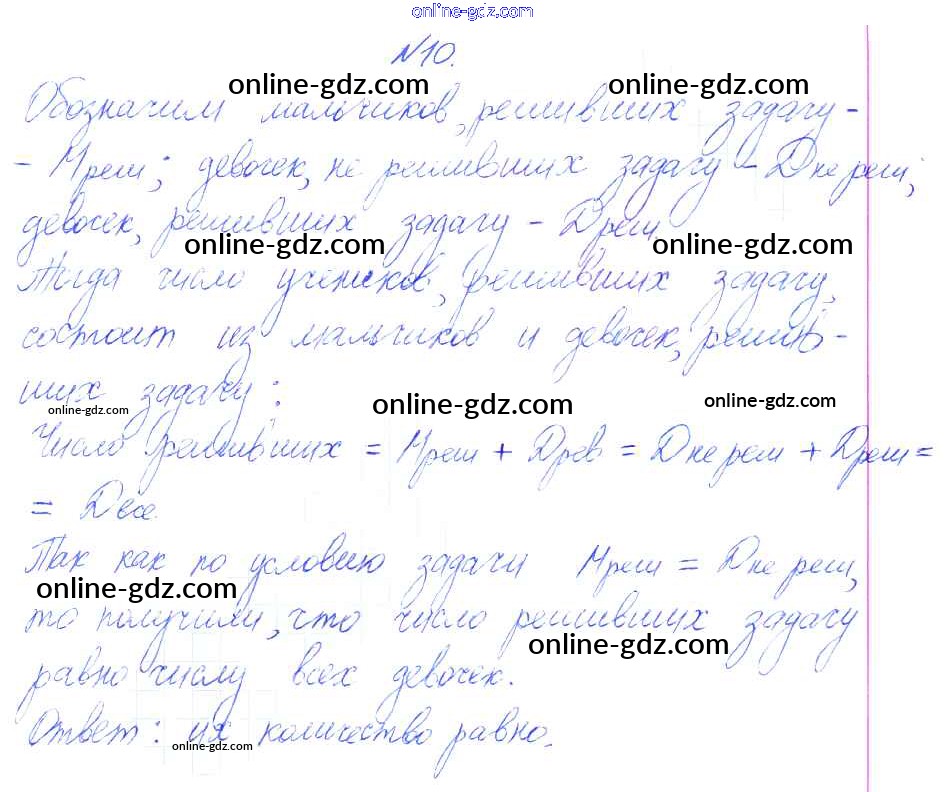 online-gdz.com
№10.
online-gdz.com online-gdz.com
Обозначим мальчиков, решивших задачу -
- Мреш; девочек, не решивших задачу - Дне реш;
девочек, решивших задачу - Дреш
online-gdz.com online-gdz.com
Тогда число учеников, решивших задачу,
состоит из мальчиков и девочек, решив-
ших задачу:
online-gdz.com online-gdz.com online-gdz.com
Число решивших = Мреш + Древ = Дне реш + Дреш =
= Двсе
Так как по условию задачи Мреш = Дне реш,
online-gdz.com
то получили, что число решивших задачу
online-gdz.com
равно числу всех девочек.
Ответ: их количество равно.
online-gdz.com